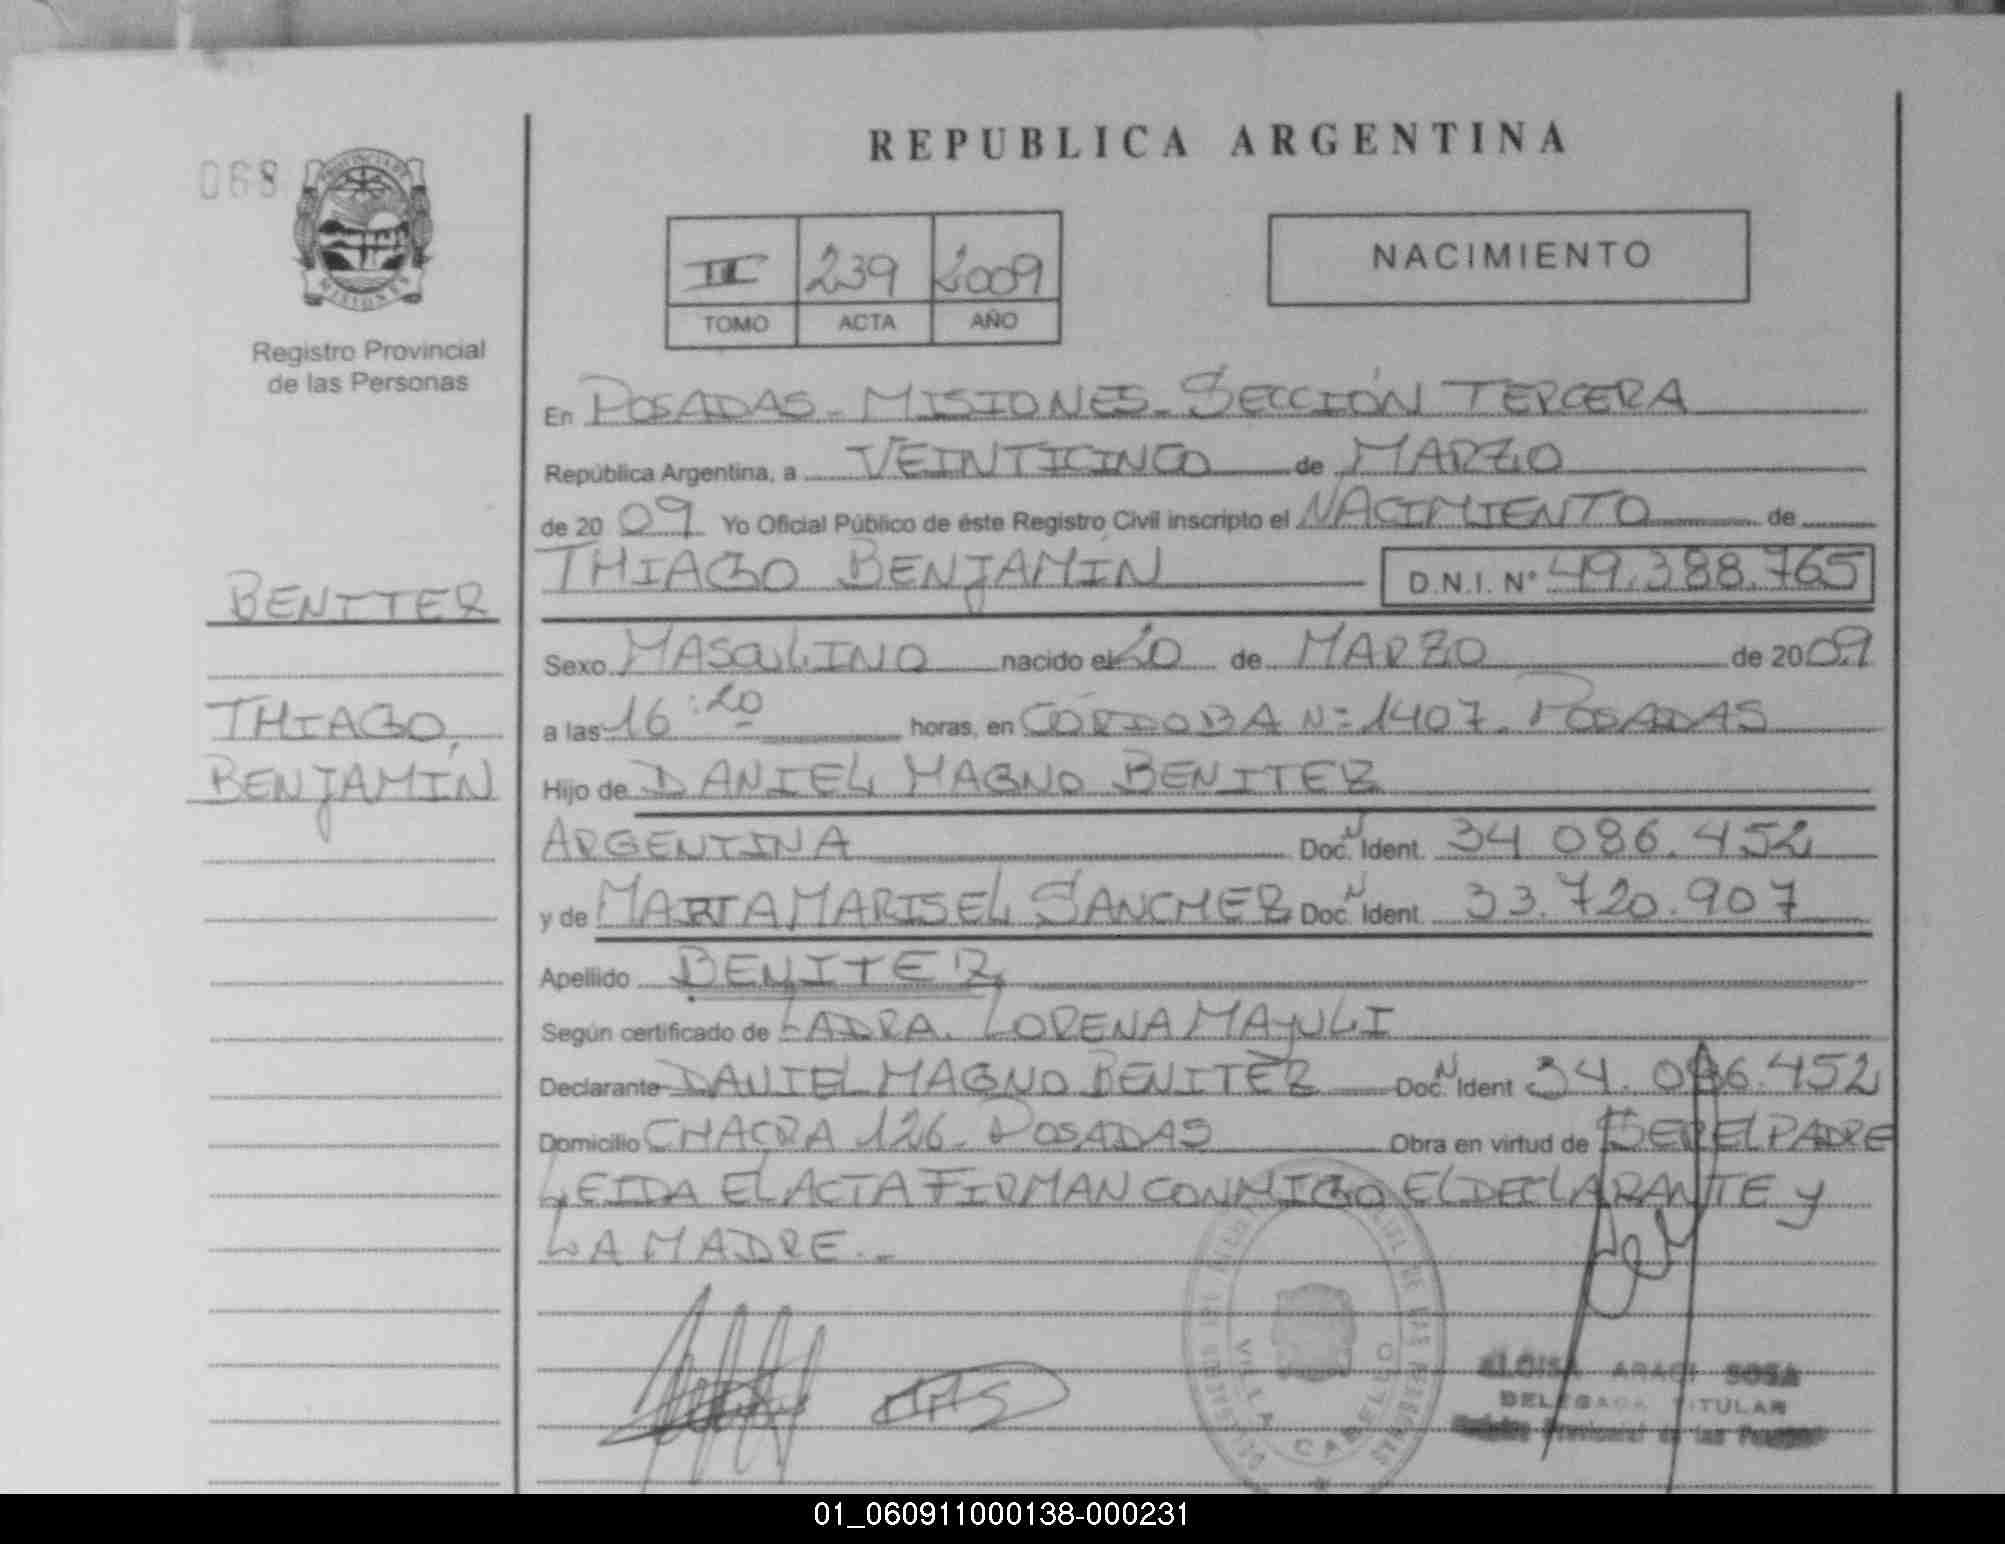 REPUBLICA ARGENTINA
068
PROVINCIA DE
MISIONES
Registro Provincial
de las Personas
III 239 2009
TOMO ACTA AÑO
NACIMIENTO
En POSADAS - MISIONES - SECCIÓN TERCERA
República Argentina, a VEINTICINCO de MARZO
de 20 09 Yo Oficial Público de éste Registro Civil inscripto el NACIMIENTO de
THIAGO BENJAMÍN D.N.I. N° 49.388.765
BENITEZ
THIAGO,
BENJAMÍN
Sexo MASCULINO nacido el 20 de MARZO de 2009
a las 16:20 horas, en CÓRDOBA Nº 1407. POSADAS
Hijo de DANIEL MAGNO BENITEZ
ARGENTINA Doc. Ident. 34 086.452
y de MARTA MARISEL SANCHEZ Doc. Ident. 33.720.907
Apellido BENITEZ
Según certificado de LA DRA. LORENA MAYULI
Declarante DANIEL MAGNO BENITEZ Doc. Ident 34.086.452
Domicilio CHACRA 126. POSADAS Obra en virtud de SER EL PADRE
LEIDA EL ACTA FIRMAN CONMIGO EL DECLARANTE Y
LA MADRE.-
VILLA CABELLO
ARACI SOSA
DELEGADA TITULAR
Registro Provincial de las Personas
01_060911000138-000231